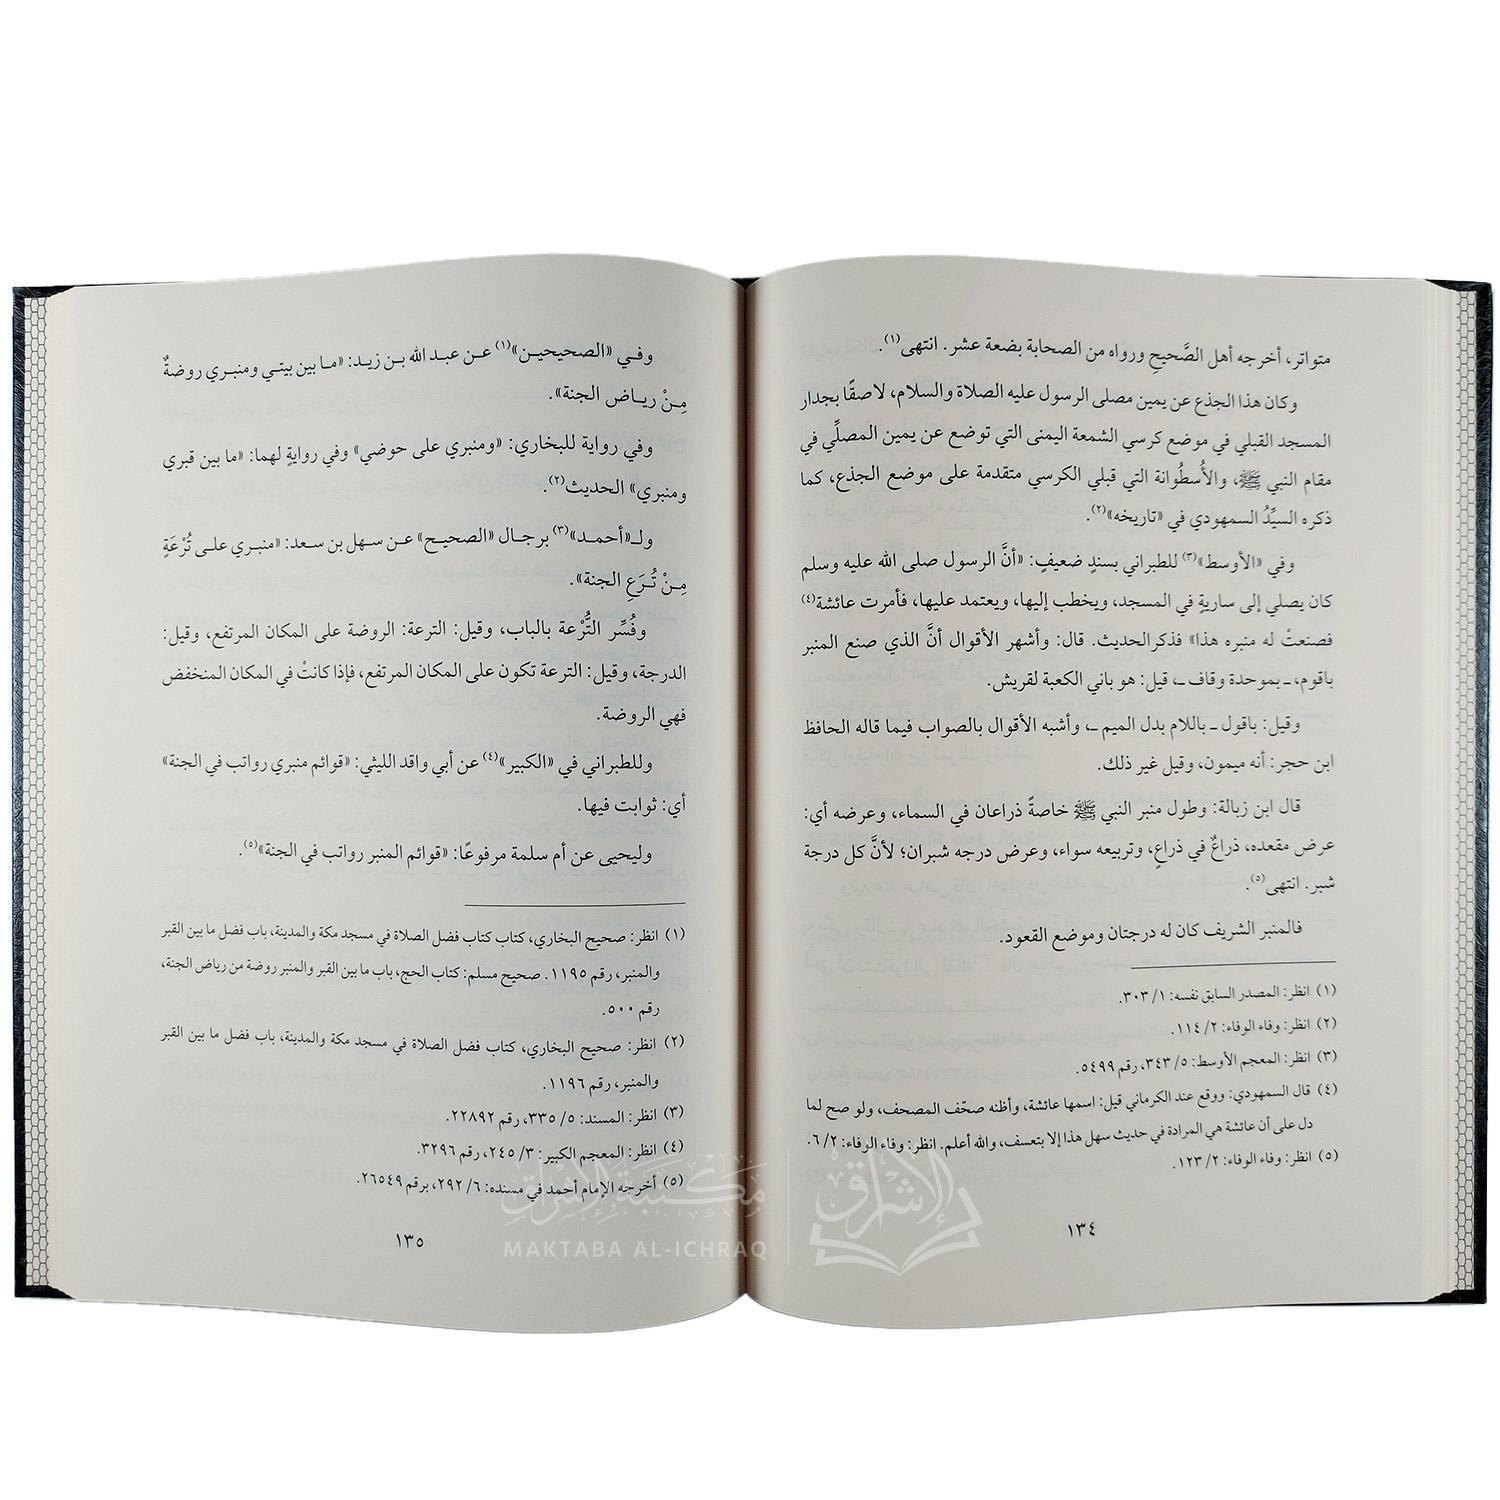 متواتر، أخرجه أهل الصَّحيحِ ورواه من الصحابة بضعة عشر. انتهى(١).
وكان هذا الجذع عن يمين مصلى الرسول عليه الصلاة والسلام، لاصقًا بجدار
المسجد القبلي في موضع كرسي الشمعة اليمنى التي توضع عن يمين المصلِّي في
مقام النبي ﷺ، والأُسطُوانة التي قبلي الكرسي متقدمة على موضع الجذع، كما
ذكره السيِّدُ السمهودي في «تاريخه»(٢).
وفي «الأوسط»(٣) للطبراني بسندٍ ضعيفٍ: «أنَّ الرسول صلى الله عليه وسلم
كان يصلي إلى ساريةٍ في المسجد، ويخطب إليها، ويعتمد عليها، فأمرت عائشة(٤)
فصنعتْ له منبره هذا» فذكرالحديث. قال: وأشهر الأقوال أنَّ الذي صنع المنبر
باقوم، ـ بموحدة وقاف ـ، قيل: هو باني الكعبة لقريش.
وقيل: باقول ـ باللام بدل الميم ـ، وأشبه الأقوال بالصواب فيما قاله الحافظ
ابن حجر: أنه ميمون، وقيل غير ذلك.
قال ابن زبالة: وطول منبر النبي ﷺ خاصةً ذراعان في السماء، وعرضه أي:
عرض مقعده، ذراعٌ في ذراعٍ، وتربيعه سواء، وعرض درجه شبران؛ لأنَّ كل درجة
شبر. انتهى(٥).
فالمنبر الشريف كان له درجتان وموضع القعود.
(١) انظر: المصدر السابق نفسه: ١/ ٣٠٣.
(٢) انظر: وفاء الوفاء: ٢/ ١١٤.
(٣) انظر: المعجم الأوسط: ٥/ ٣٤٣، رقم ٥٤٩٩.
(٤) قال السمهودي: ووقع عند الكرماني قيل: اسمها عائشة، وأظنه صحّف المصحف، ولو صح لما
دل على أن عائشة هي المرادة في حديث سهل هذا إلا بتعسف، والله أعلم. انظر: وفاء الوفاء: ٢/ ٦.
(٥) انظر: وفاء الوفاء: ٢/ ١٢٣.
١٣٤
وفي «الصحيحين»(١) عن عبد الله بن زيد: «ما بين بيتي ومنبري روضةٌ
مِنْ رياض الجنة».
وفي رواية للبخاري: «ومنبري على حوضي» وفي روايةٍ لهما: «ما بين قبري
ومنبري» الحديث(٢).
ولـ«أحمد»(٣) برجال «الصحيح» عن سهل بن سعد: «منبري على تُرْعَةٍ
مِنْ تُرَعِ الجنة».
وفُسِّر التُّرْعة بالباب، وقيل: الترعة: الروضة على المكان المرتفع، وقيل:
الدرجة، وقيل: الترعة تكون على المكان المرتفع، فإذا كانتْ في المكان المنخفض
فهي الروضة.
وللطبراني في «الكبير»(٤) عن أبي واقد الليثي: «قوائم منبري رواتب في الجنة»
أي: ثوابت فيها.
وليحيى عن أم سلمة مرفوعًا: «قوائم المنبر رواتب في الجنة»(٥).
(١) انظر: صحيح البخاري، كتاب كتاب فضل الصلاة في مسجد مكة والمدينة، باب فضل ما بين القبر
والمنبر، رقم ١١٩٥. صحيح مسلم: كتاب الحج، باب ما بين القبر والمنبر روضة من رياض الجنة،
رقم ٥٠٠.
(٢) انظر: صحيح البخاري، كتاب فضل الصلاة في مسجد مكة والمدينة، باب فضل ما بين القبر
والمنبر، رقم ١١٩٦.
(٣) انظر: المسند: ٥/ ٣٣٥، رقم ٢٢٨٩٢.
(٤) انظر: المعجم الكبير: ٣/ ٢٤٥، رقم ٣٢٩٦.
(٥) أخرجه الإمام أحمد في مسنده: ٦/ ٢٩٢، برقم ٢٦٥٤٩.
١٣٥
الإشراق
مكتبة الإشراق
MAKTABA AL-ICHRAQ